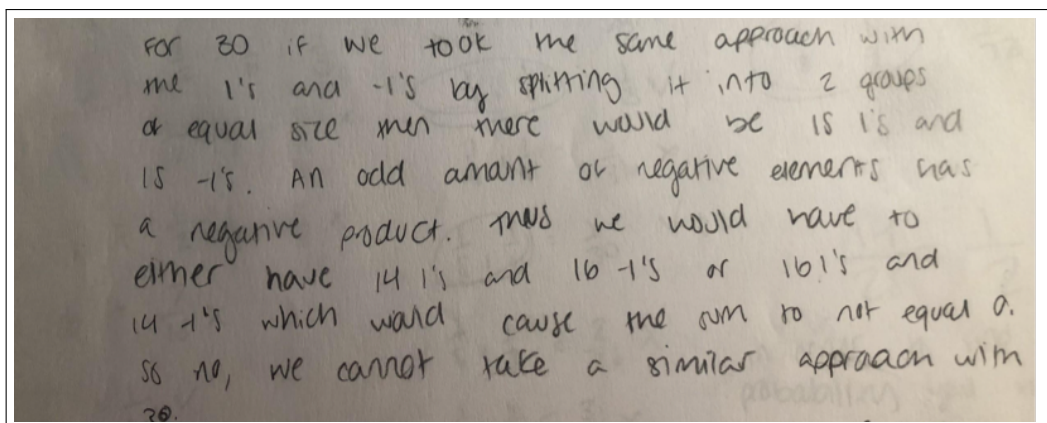 For 30 if we took the same approach with
the 1's and -1's by splitting it into 2 groups
of equal size then there would be 15 1's and
15 -1's. An odd amount of negative elements has
a negative product. Thus we would have to
either have 14 1's and 16 -1's or 16 1's and
14 -1's which would cause the sum to not equal 0.
So no, we cannot take a similar approach with
30.